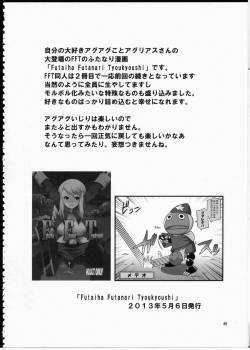 自分の大好きアグアグことアグリアスさんの
大登場のFFTのふたなり漫画
「Futaiha Futanari Tyoukyoushi」です。
FFT同人は2冊目で一応前回の続きとなっています
当然のように全員に生やしてますし
モルボル化みたいな特殊なものも盛り込みました。
好きなものばっかり詰め込むと幸せになれます。
アグアグいじりは楽しいので
またふと出すかもわかりません。
そうなったら一回正気に戻しても楽しいかなあ
なんて思ってみたり、妄想つきませんね。
ADULT ONLY
メテオ
「Futaiha Futanari Tyoukyoushi」
2013年5月6日発行